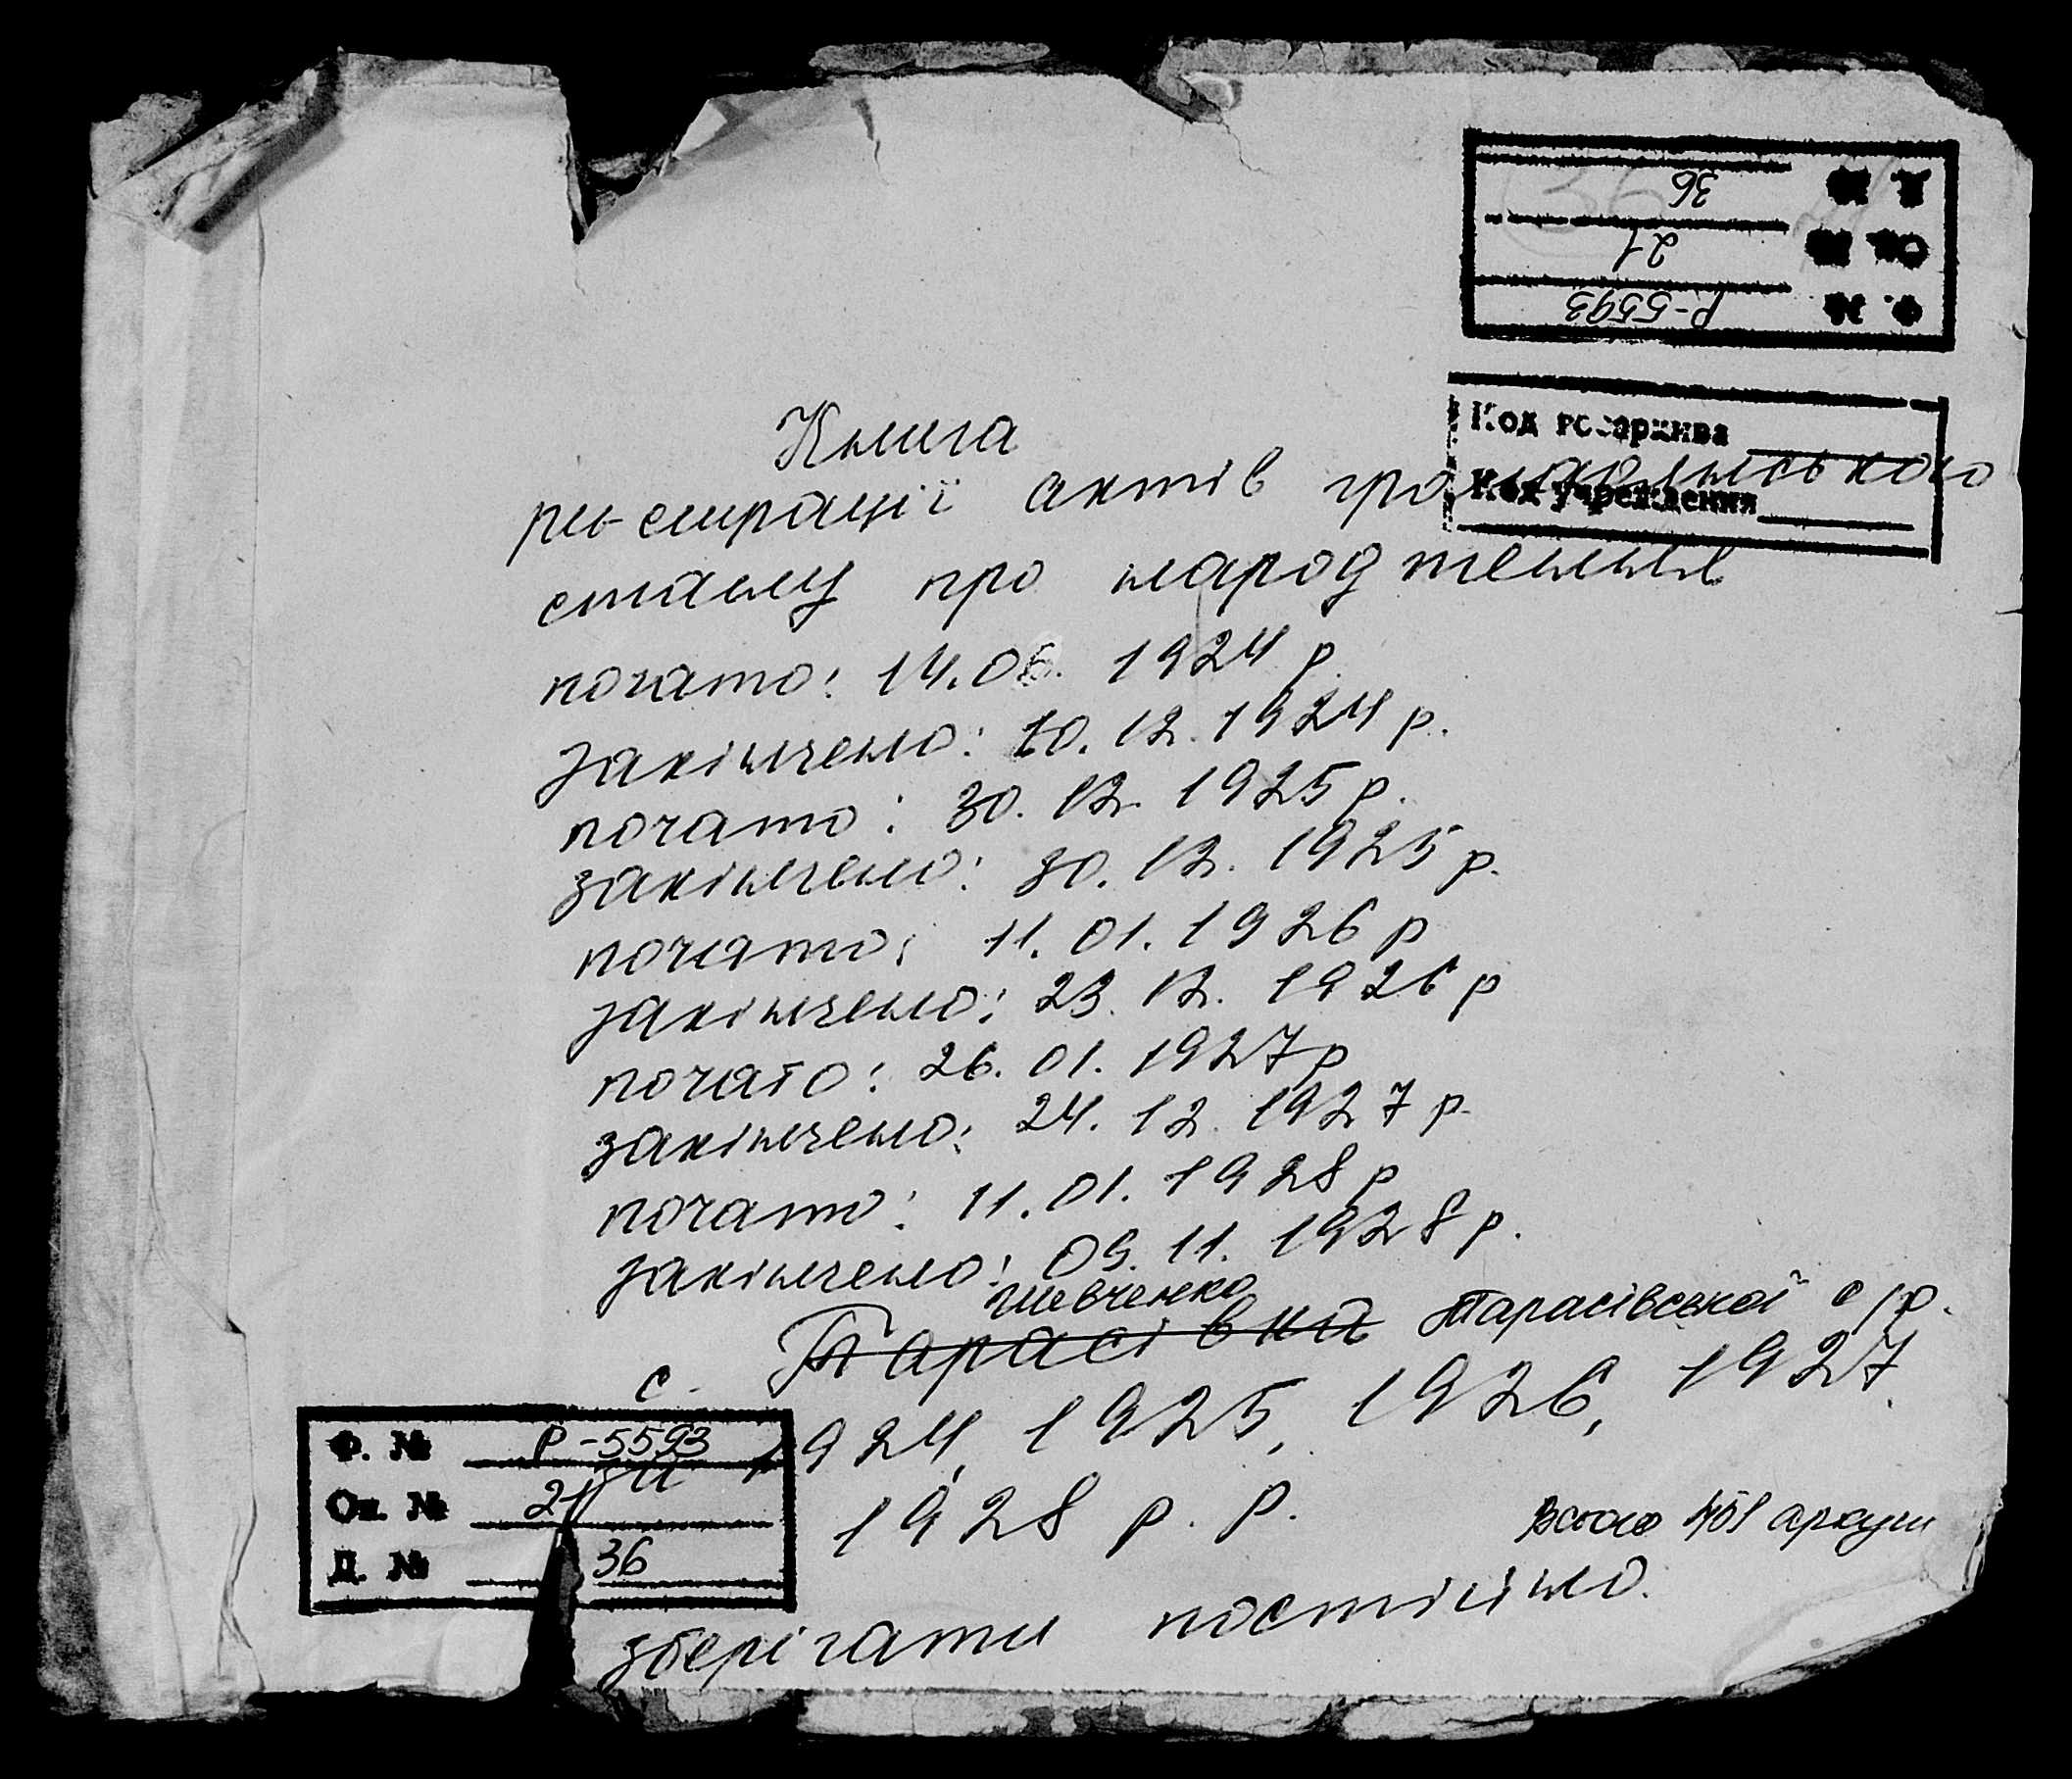 Ф. № Р-5593
Оп. № 21
Д. № 36
Код госархива
Код учреждения
Книга
реєстрації актів громадянського
стану про народження
почато: 14.06. 1924 р.
закінчено: 10.12.1924 р.
почато: 30.12.1925 р.
закінчено: 30.12.1925 р.
почато: 11.01.1926 р
закінчено: 23.12.1926 р
почато: 26.01.1927 р
закінчено: 24.12.1927 р.
почато: 11.01.1928 р
закінчено: 09.11.1928 р.
Шевченко
с. Тарасівка Тарасівської с/р.
1924, 1925, 1926, 1927
1928 р.р.
Всього аркуш
зберігати постійно.
Ф. № Р-5593
Оп. № 21
Д. № 36